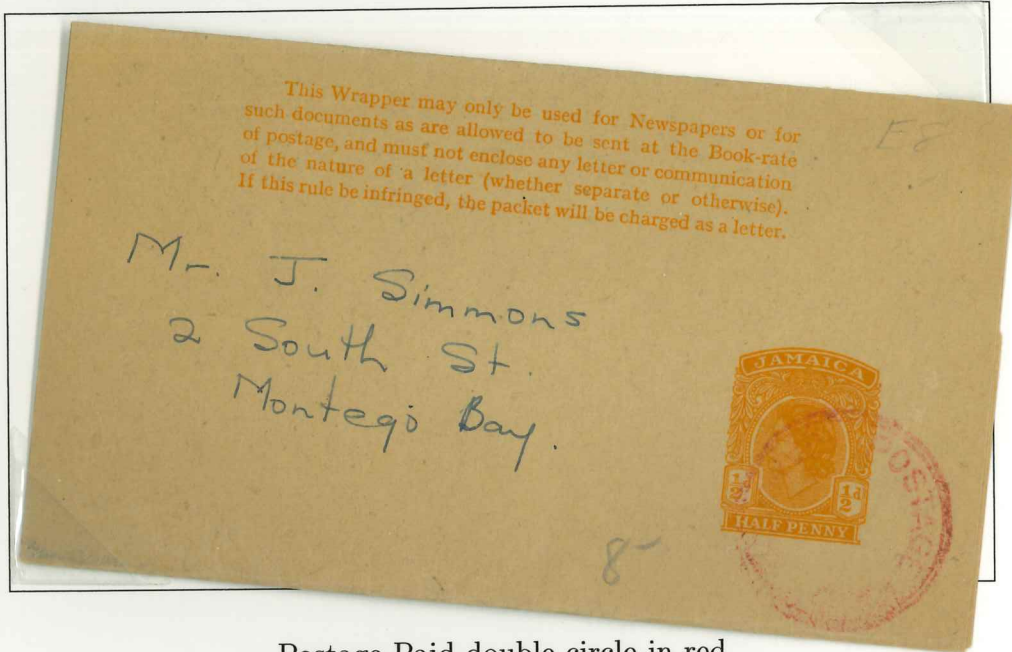 This Wrapper may only be used for Newspapers or for
such documents as are allowed to be sent at the Book-rate
of postage, and must not enclose any letter or communication
of the nature of a letter (whether separate or otherwise).
If this rule be infringed, the packet will be charged as a letter.
E8
Mr. J. Simmons
2 South St.
Montego Bay.
JAMAICA
½d
½d
HALF PENNY
POSTAGE
8-
Postage Paid double circle in red